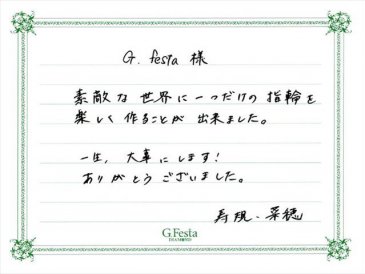 G. festa 様
素敵な世界に一つだけの指輪を
楽しく作ることが出来ました。
一生、大事にします!
ありがとうございました。
寿規、菜穂
G.Festa
DIAMOND